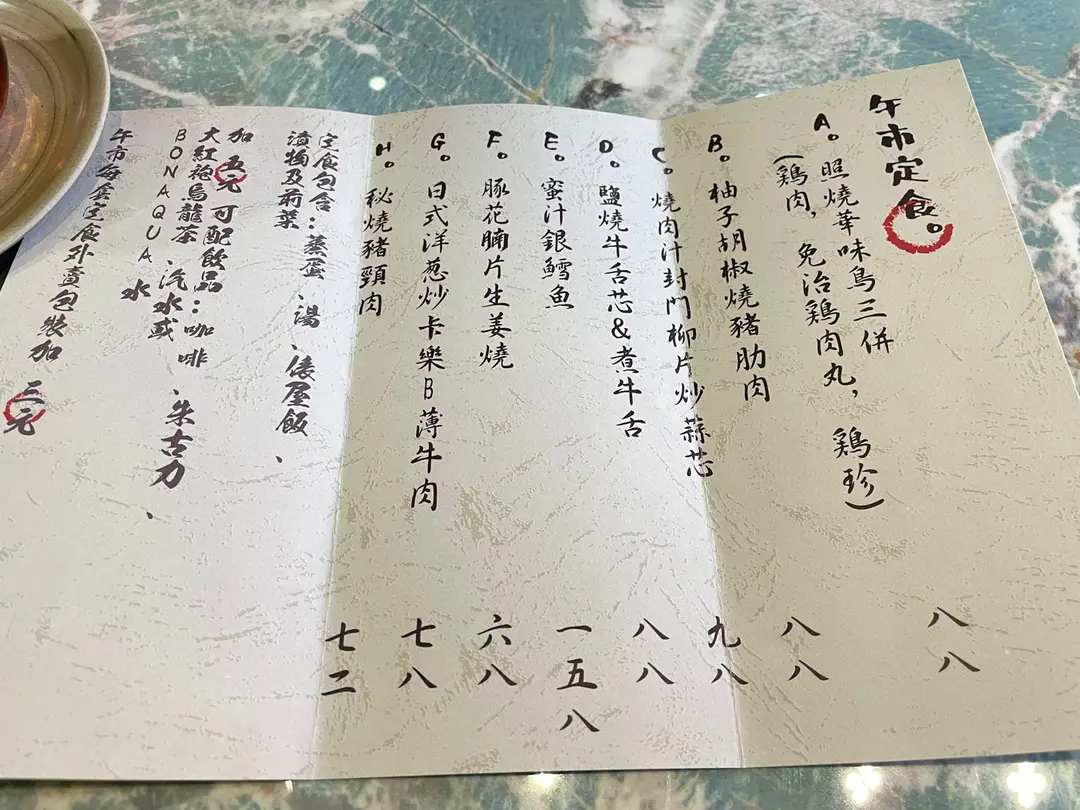 午市定食。
A。照燒華味鳥三併 八八
(鶏肉, 免治鶏肉丸, 鶏珍)
B。柚子胡椒燒豬肋肉 八八
C。燒肉汁封門柳片炒蒜芯 九八
D。鹽燒牛舌芯&煮牛舌 八八
E。蜜汁銀鱈魚 一五八
F。豚花腩片生姜燒 六八
G。日式洋葱炒卡樂B薄牛肉 七八
H。秘燒豬頸肉 七二
定食包含:蒸蛋、湯、俵屋飯、
漬物及前菜
加五元可配飲品:咖啡、朱古力、
大紅袍烏龍茶、汽水或
BONAQUA水
午市每套定食外賣包裝加三元